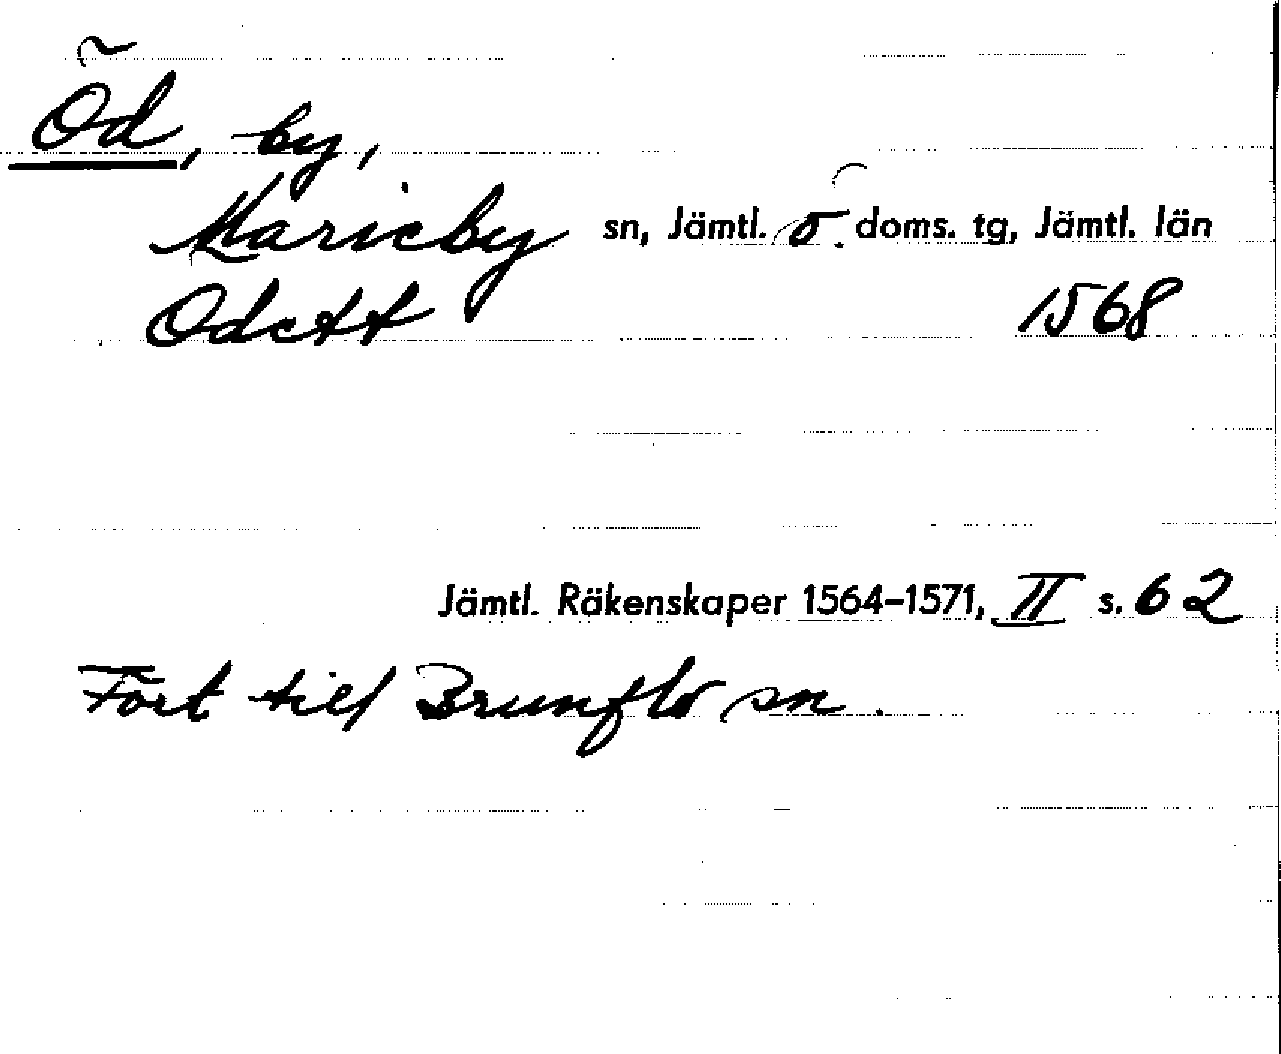 Öd, by,
Marieby sn, Jämtl. ö. doms. tg, Jämtl. län
Odett 1568
Jämtl. Räkenskaper 1564-1571, II s. 62
Fört till Brunflo sn.